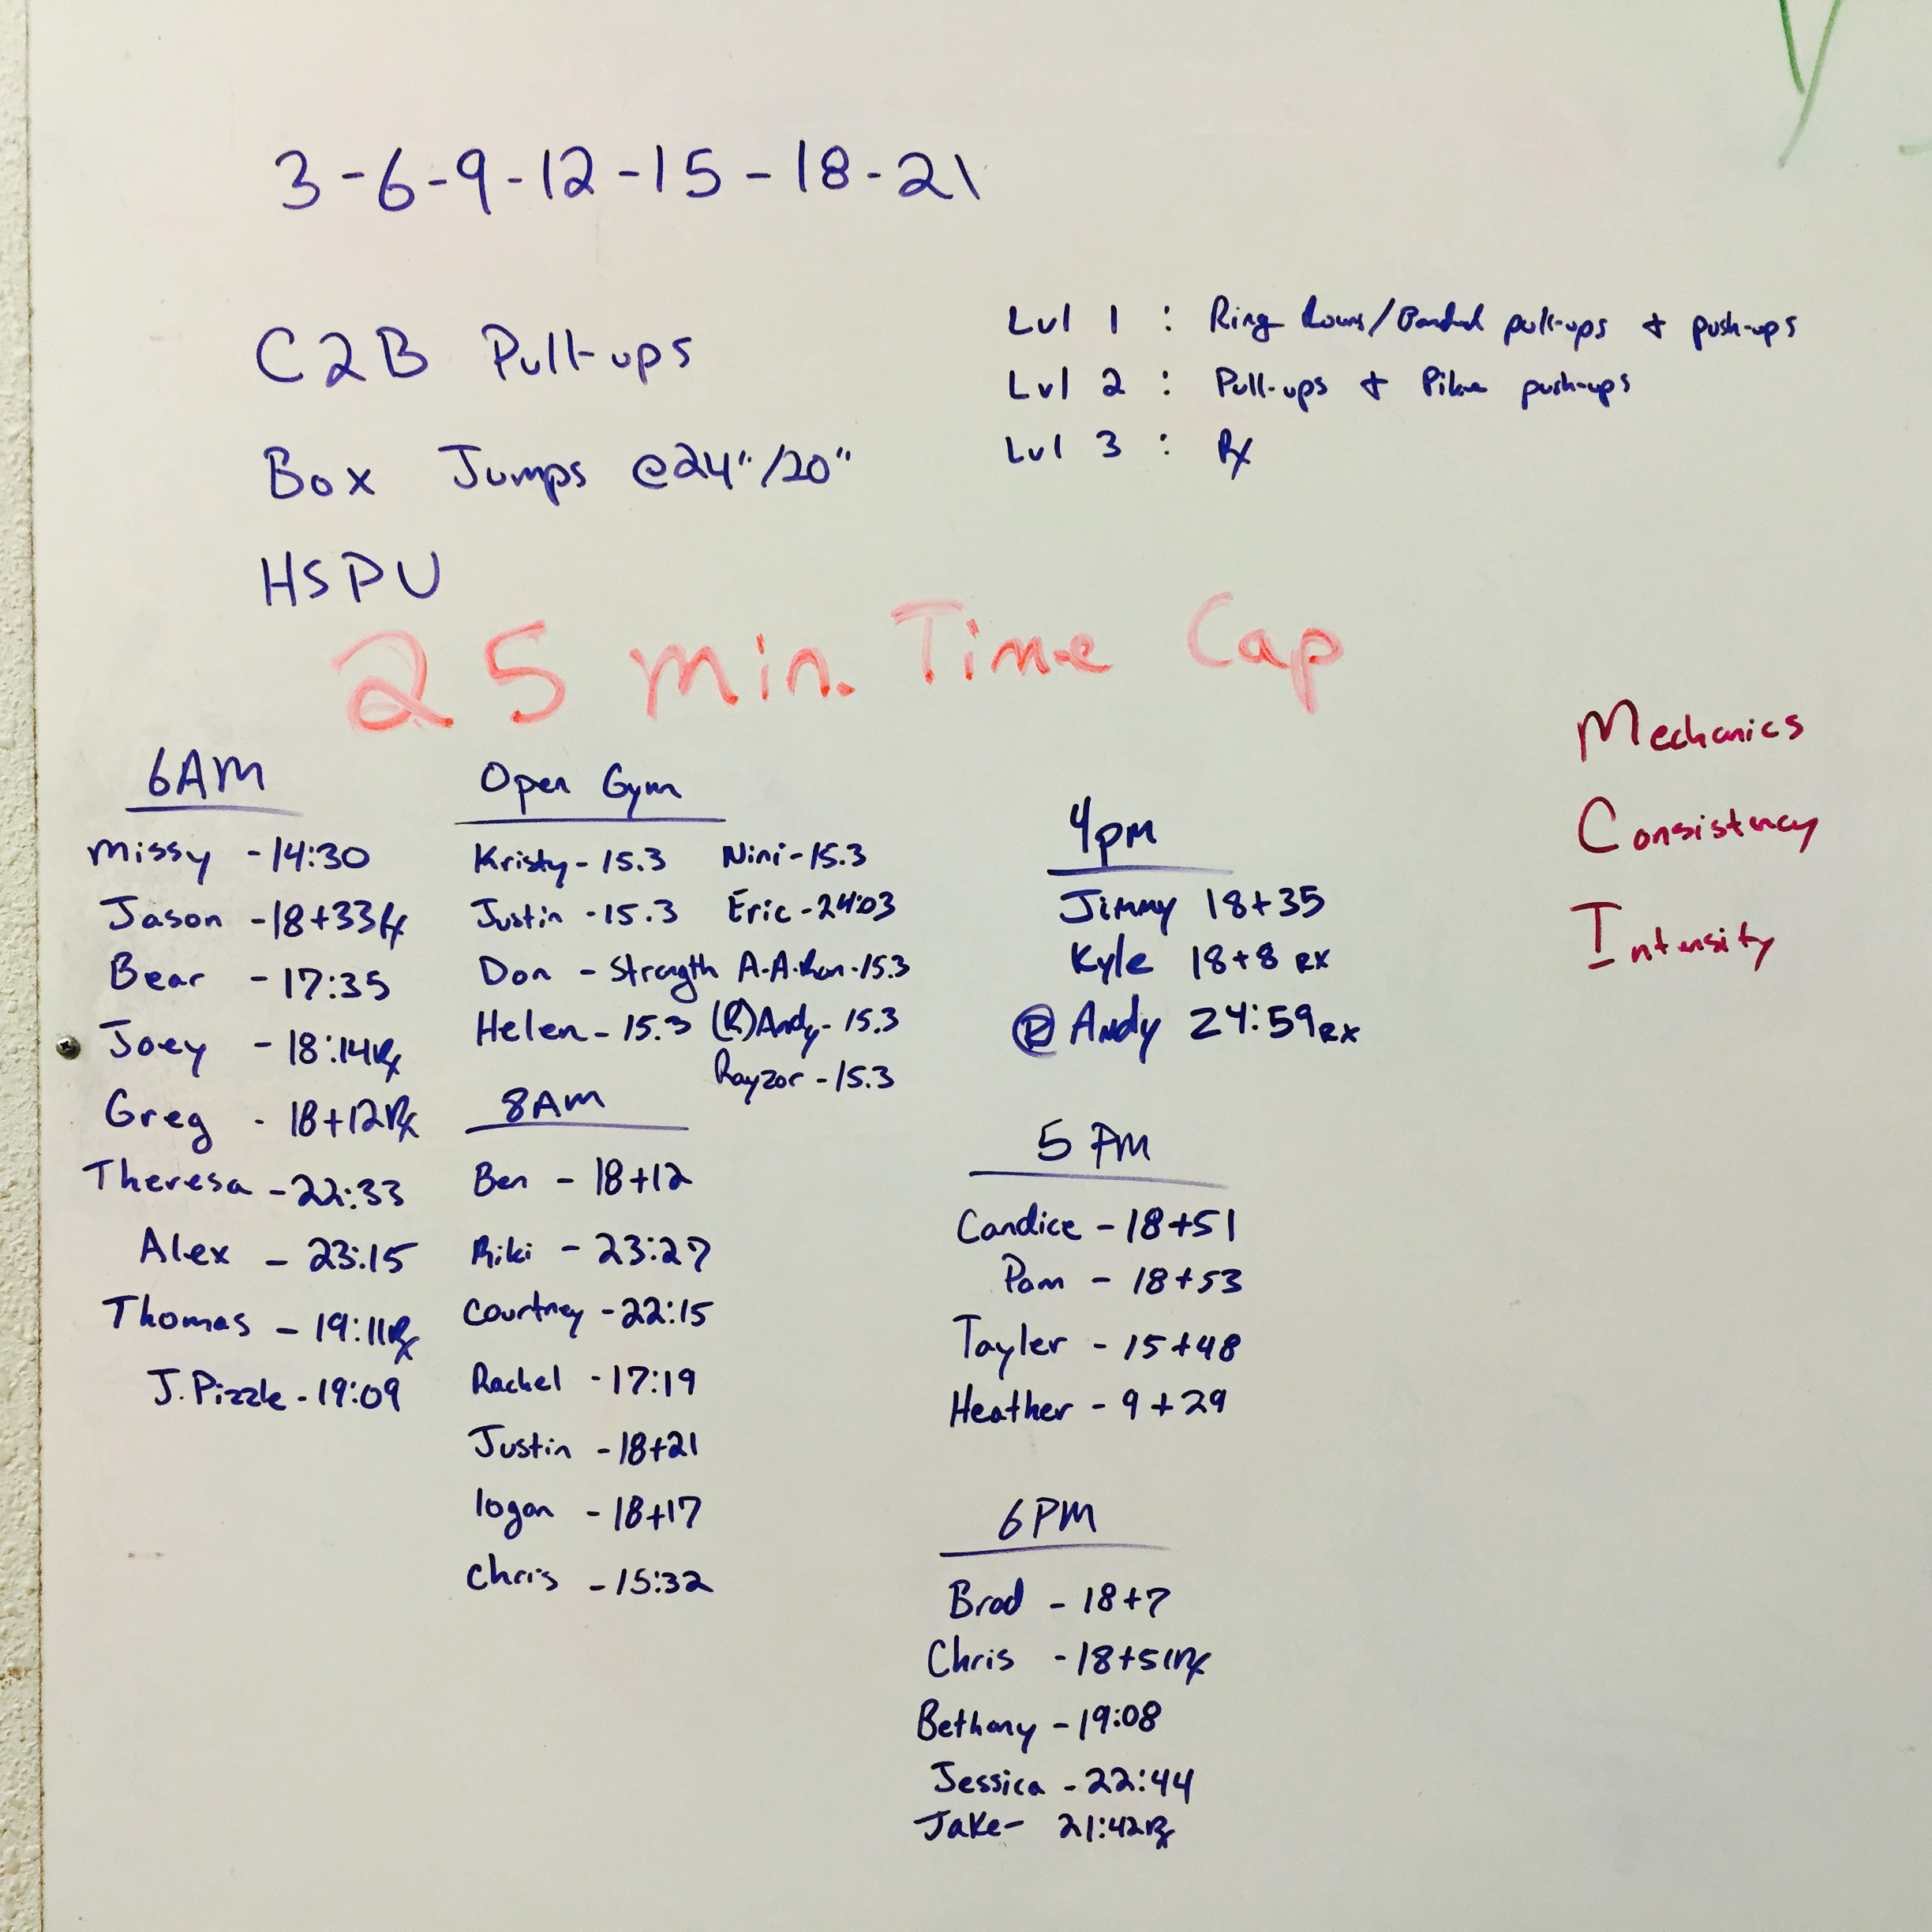 3-6-9-12-15-18-21
C2B Pull-ups
Box Jumps @24"/20"
HSPU
Lvl 1 : Ring Rows/Banded pull-ups + push-ups
Lvl 2 : Pull-ups + Pike push-ups
Lvl 3 : Rx
25 min. Time Cap
Mechanics
Consistency
Intensity
6AM
Missy - 14:30
Jason - 18+33 Rx
Bear - 17:35
Joey - 18:14 Rx
Greg - 18+12 Rx
Theresa - 22:33
Alex - 23:15
Thomas - 19:11 Rx
J.Pizzle - 19:09
Open Gym
Kristy - 15.3
Justin - 15.3
Don - Strength
Helen - 15.3
Nini - 15.3
Eric - 24:03
A.A.Ron - 15.3
(R)Andy - 15.3
Rayzor - 15.3
8AM
Ben - 18+12
Riki - 23:27
Courtney - 22:15
Rachel - 17:19
Justin - 18+21
logan - 18+17
Chris - 15:32
4pm
Jimmy 18+35
Kyle 18+8 RX
Ⓡ Andy 24:59 RX
5 PM
Candice - 18+51
Pam - 18+53
Tayler - 15+48
Heather - 9+29
6PM
Brad - 18+7
Chris - 18+51 Rx
Bethany - 19:08
Jessica - 22:44
Jake - 21:42 Rx